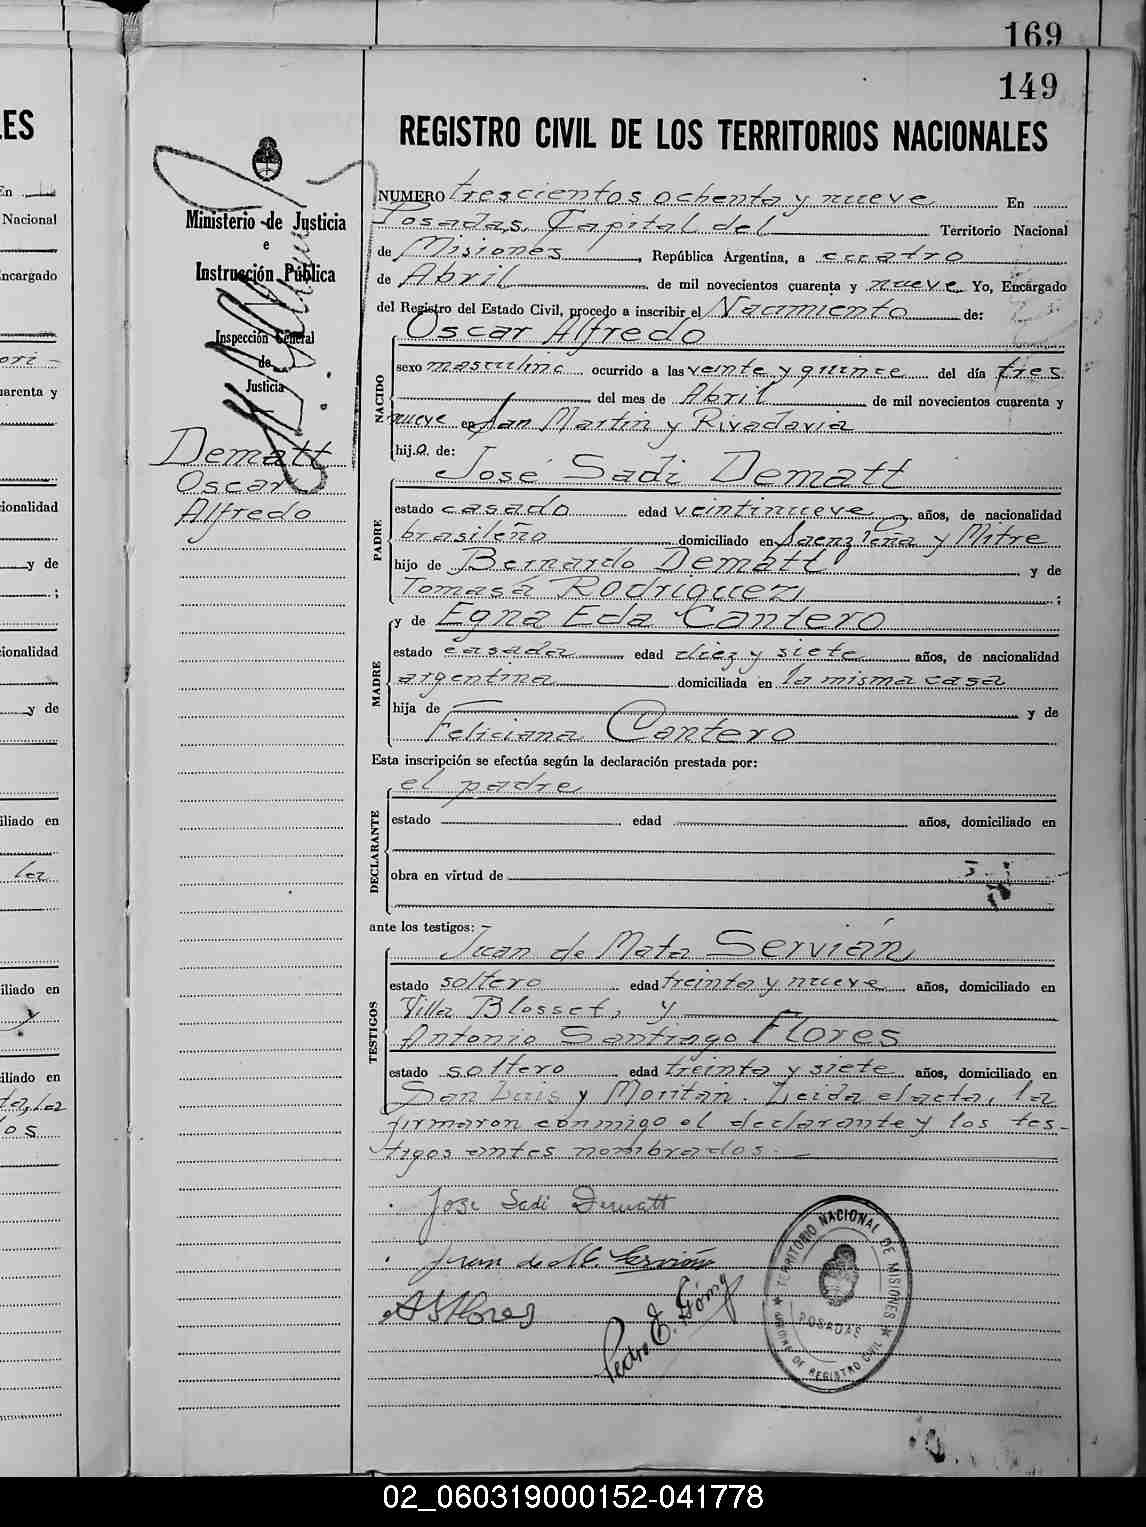 169
149
LES
REGISTRO CIVIL DE LOS TERRITORIOS NACIONALES
Ministerio de Justicia
e
Instrucción Pública
Inspección General
de
Justicia
Dematt
Oscar
Alfredo
NUMERO trescientos ochenta y nueve En
Posadas, Capital del Territorio Nacional
de Misiones, República Argentina, a cuatro
de Abril de mil novecientos cuarenta y nueve Yo, Encargado
del Registro del Estado Civil, procedo a inscribir el Nacimiento de:
Oscar Alfredo
NACIDO
sexo masculino ocurrido a las veinte y quince del día tres
del mes de Abril de mil novecientos cuarenta y
nueve en San Martin y Rivadavia
hijo de:
José Sadi Dematt
PADRE
estado casado edad veintinueve años, de nacionalidad
brasileño domiciliado en Saenz Peña y Mitre
hijo de Bernardo Dematt y de
Tomasa Rodriguez;
y de Egna Eda Cantero
MADRE
estado casada edad diez y siete años, de nacionalidad
argentina domiciliada en la misma casa
hija de y de
Feliciana Cantero
Esta inscripción se efectúa según la declaración prestada por:
el padre
DECLARANTE
estado edad años, domiciliado en
obra en virtud de
ante los testigos:
Juan de Mata Servián
TESTIGOS
estado soltero edad treinta y nueve años, domiciliado en
Villa Blosset, y
Antonio Santiago Flores
estado soltero edad treinta y siete años, domiciliado en
San Luis y Moritán. Leida el acta, la
firmaron conmigo el declarante y los tes-
tigos antes nombrados.
Jose Sadi Dematt
Juan de M. Servián
A S Flores
Pedro E. Gómez
TERRITORIO NACIONAL DE MISIONES
POSADAS
OFICINA DE REGISTRO CIVIL
02_060319000152-041778